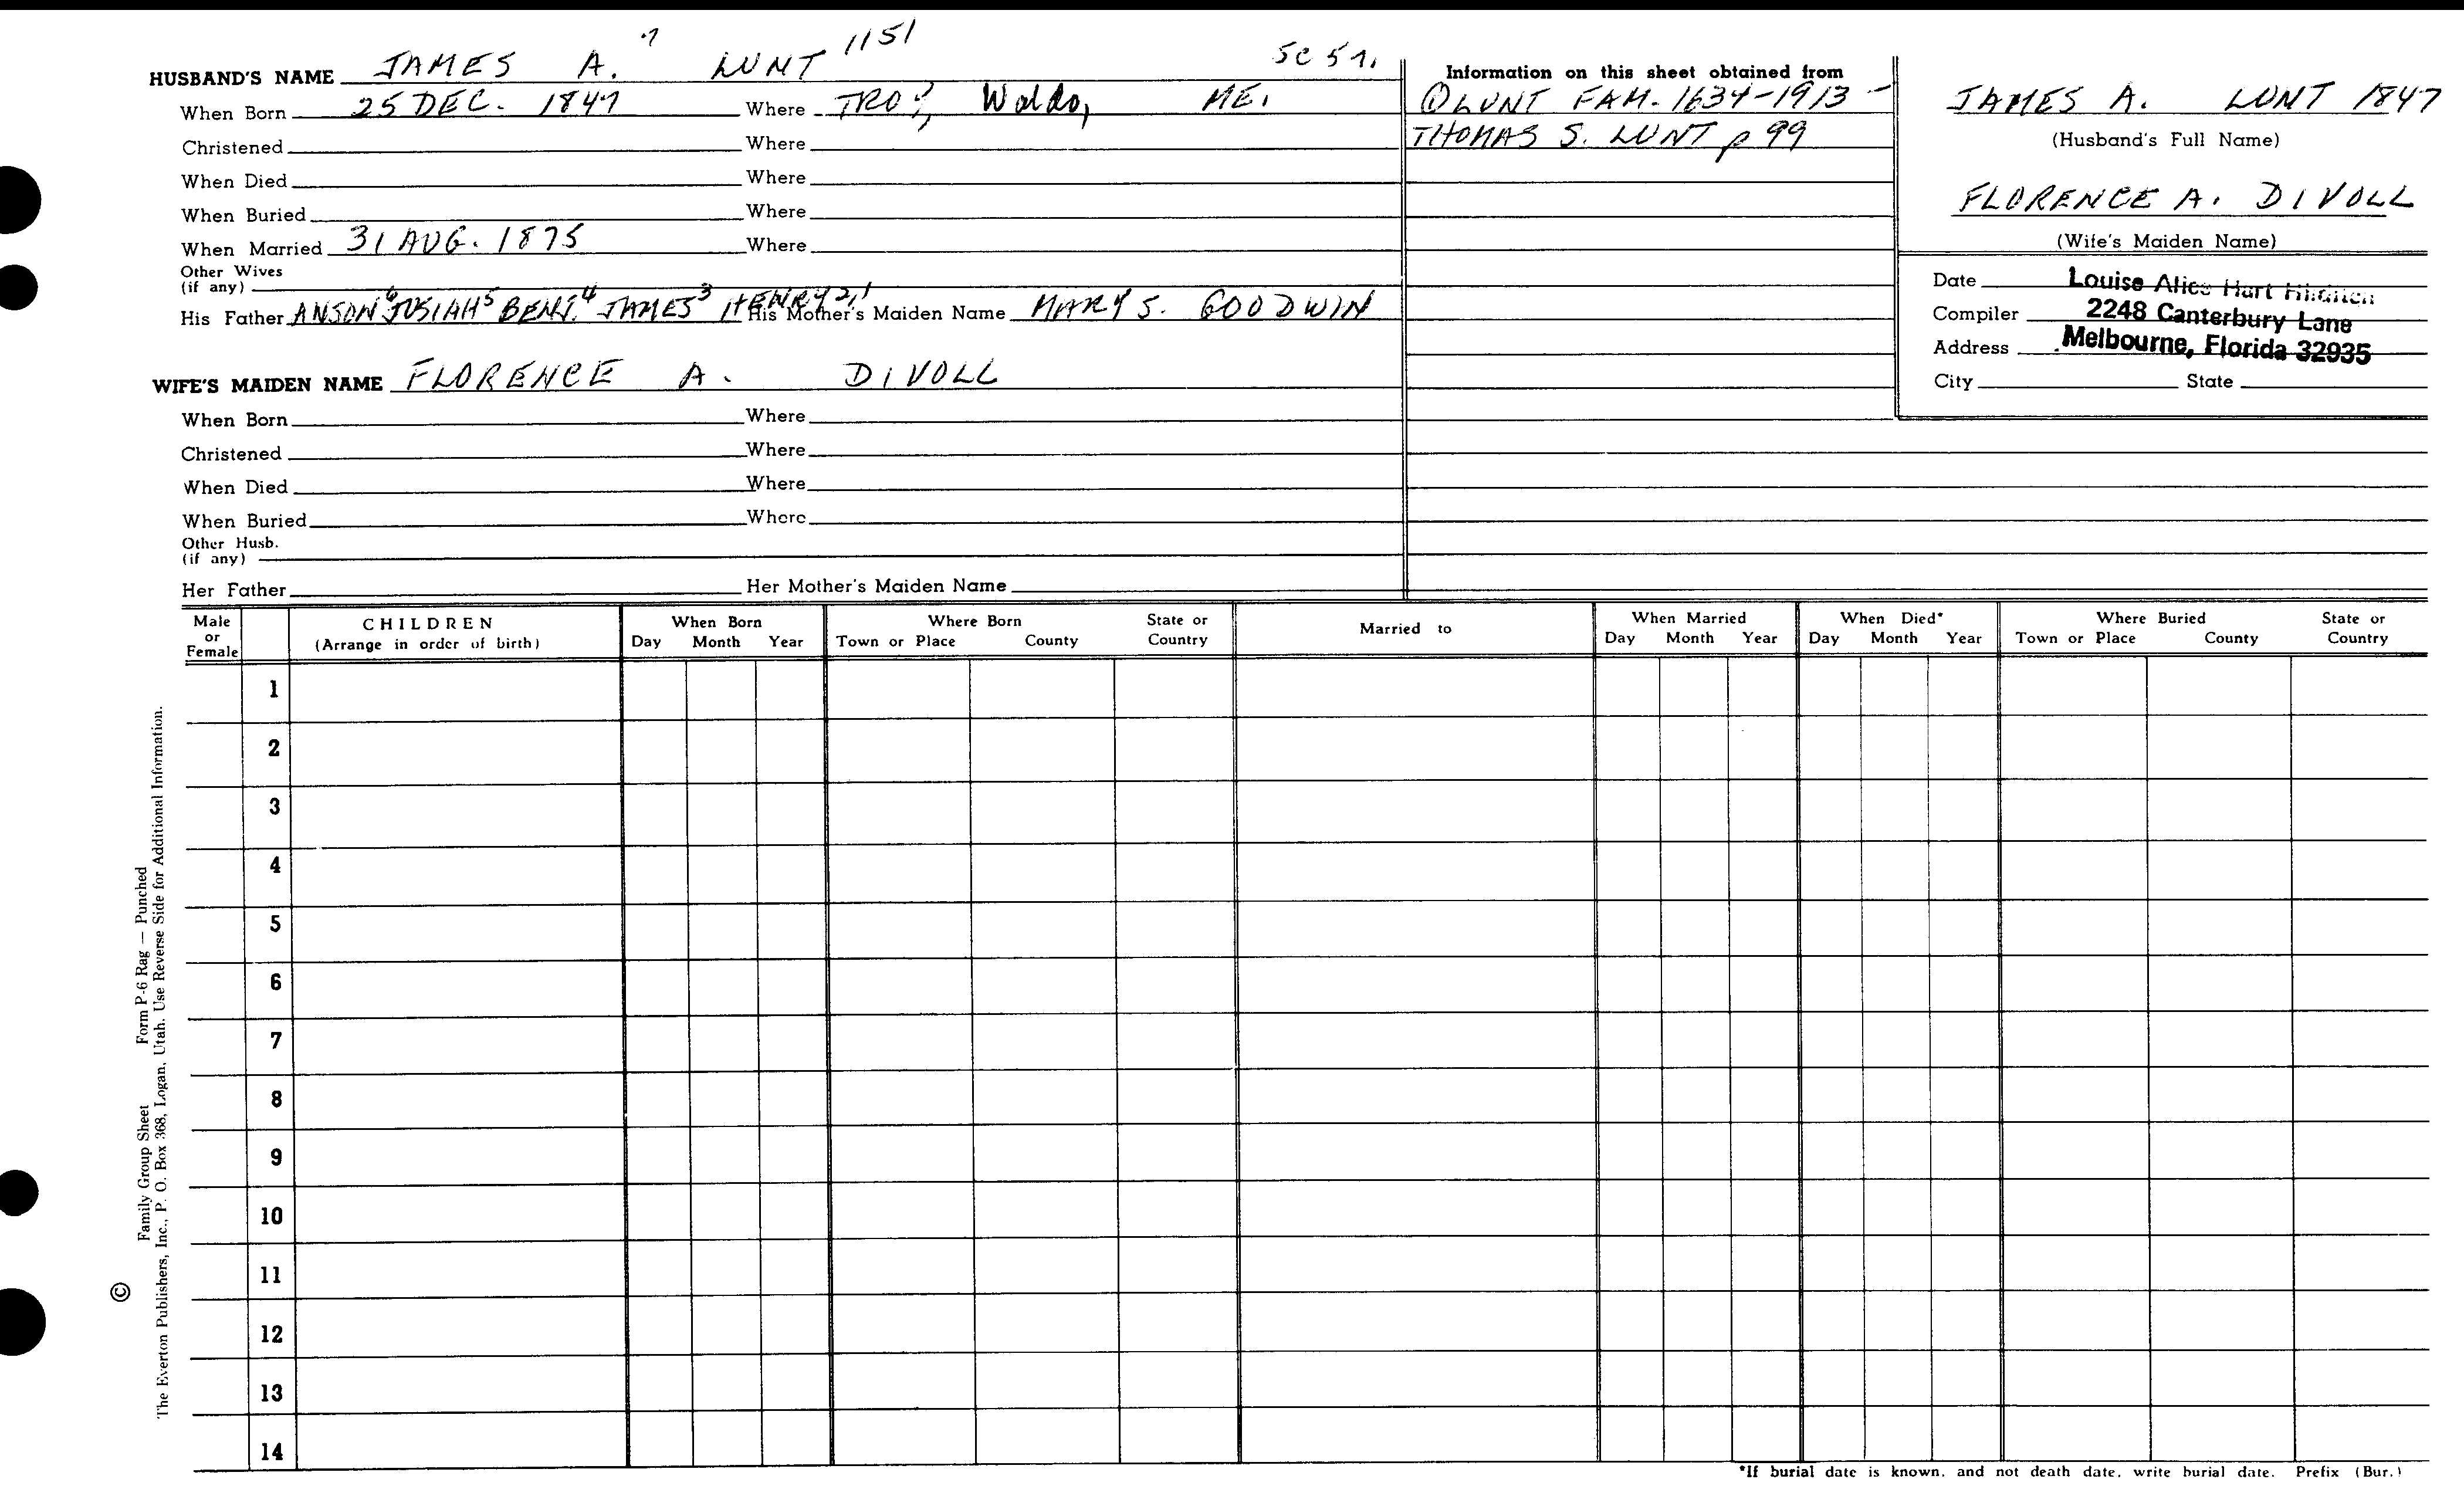 HUSBAND'S NAME JAMES A.7 LUNT 1151
When Born 25 DEC. 1847 Where TROY, Waldo, ME.
Christened Where
When Died Where
When Buried Where
When Married 31 AUG. 1875 Where
Other Wives
(if any)
His Father ANSON6 JOSIAH5 BENJ.4 JAMES3 HENRY2,1 His Mother's Maiden Name MARY S. GOODWIN
WIFE'S MAIDEN NAME FLORENCE A. DIVOLL
When Born Where
Christened Where
When Died Where
When Buried Where
Other Husb.
(if any)
Her Father Her Mother's Maiden Name
Information on this sheet obtained from
① LUNT FAM. 1634-1913 -
THOMAS S. LUNT p 99
JAMES A. LUNT 1847
(Husband's Full Name)
FLORENCE A. DIVOLL
(Wife's Maiden Name)
Date Louise Alice Hart
Compiler 2248 Canterbury Lane
Address Melbourne, Florida 32935
City State
Male or Female CHILDREN (Arrange in order of birth) When Born Day Month Year Where Born Town or Place County State or Country Married to When Married Day Month Year When Died* Day Month Year Where Buried Town or Place County State or Country
1
2
3
4
5
6
7
8
9
10
11
12
13
14
*If burial date is known, and not death date, write burial date. Prefix (Bur.)
Family Group Sheet Form P-6 Rag — Punched
© The Everton Publishers, Inc., P. O. Box 368, Logan, Utah. Use Reverse Side for Additional Information.